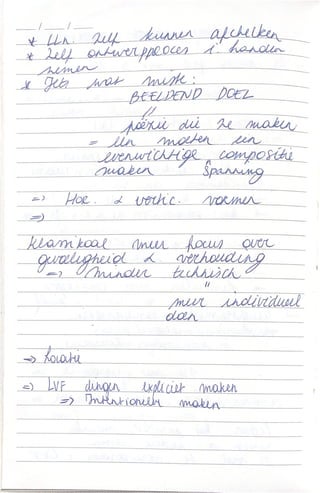 * LLn. zelf kunnen afchecken
* Zelf ontwerpproces i. handen
nemen
* Iets wat miste:
BEELDEND DOEL
"
poëzie die ze maken
= lln moeten een
evenwichtige compositie
maken Spanning
=> Hor. & vertic. vormen
=>
Klassikaal meer focus over
gevoeligheid & verhouding
=> minder technisch
"
meer individueel
doen
=> Locatie
=> LVF dingen expliciet maken
=> Intentioneler maken